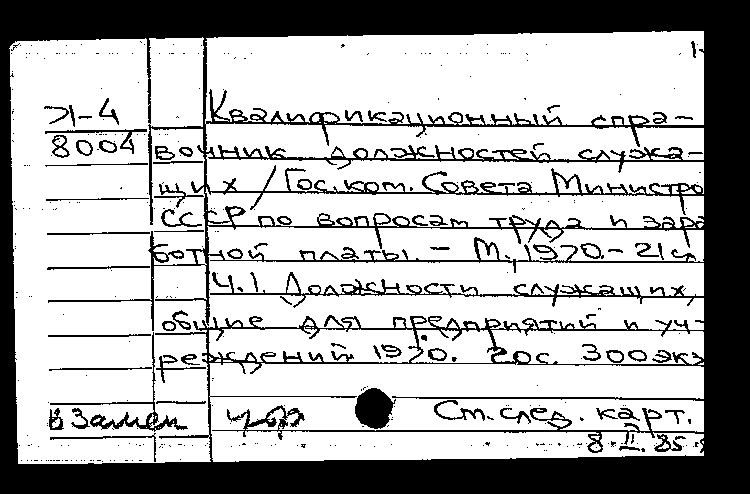 Л-4 Квалификационный спра-
8004 вочник должностей служа-
щих / Гос. ком. Совета Министро
СССР по вопросам труда и зара
ботной платы. - М., 1970. - 21 с.
Ч.1. Должности служащих,
общие для предприятий и уч-
реждений. 1970. 20с. 300 экз
взамен См. след. карт.
8.II.85.